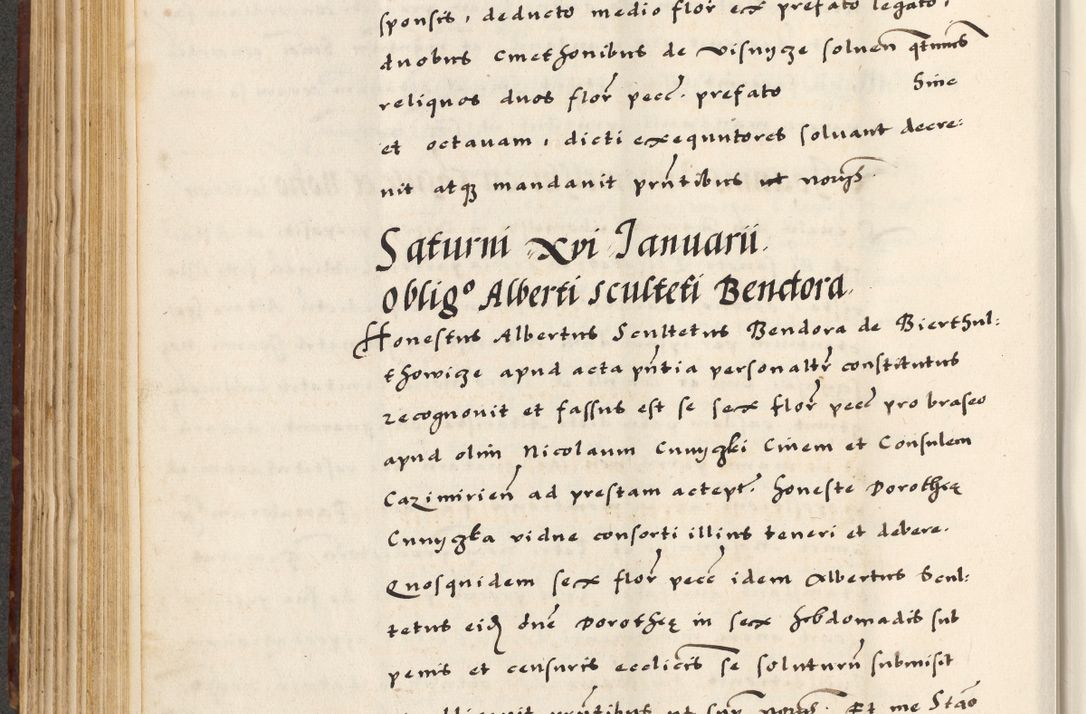 sponsis, deducto medio flor ex prefato legato,
duobus Cmethonibus de Visnycze soluen qtumcs
reliquos duos flor pecc. prefato Sine
et octauam, dicti exequutores soluant decre:
uit atqz mandauit prntibus ut noris
Saturni xvi Ianuarii.
Obligº Alberti Sculteti Benctora
Honestus Albertus Scultetus Bendora de Bierthul:
thowicze apud acta pntia personaltr constitutus
recognouit et fassus est se sex flor pecc pro braseo
apud olim Nicolaum Cunyczki Ciuem et Consulem
Cazimirien ad prestam accept. honeste Dorothee
Cunyczka vidue consorti illius teneri et debere.
Quosquidem sex flor pecc idem Albertus Scul:
tetus eid dne Dorothee in sex hebdomadis sub
penis et censuris ecclicis se soluturu submisit
prntibus ut sup noris. Et me Stao